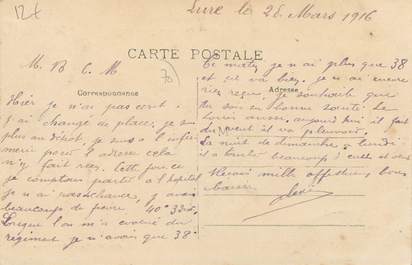 12f
Lure le 28 Mars 1916
CARTE POSTALE
M. B. C. M
70
Correspondance
Adresse
Hier je n'ai pas écrit
j'ai changé de place, je suis
plus au dépôt, je suis à l'infir
merie pour l'adresse cela
n'y fait rien. Cette fièvre
je comptais partir à l'hôpital
je n'ai pas chance, j'avais
beaucoup de fièvre 40°
Lorsque l'on m'a évacué du
régiment je n'avais que 38°
Ce matin je n'ai plus que 38
et ça va bien. je n'ai encore
rien reçu. je souhaite que
tu sois en bonne santé
Louis aussi. aujourd'hui il fait
du vent il va pleuvoir.
La nuit de dimanche à lundi
il a tonné beaucoup
Recois mille affectueux bons
baisers